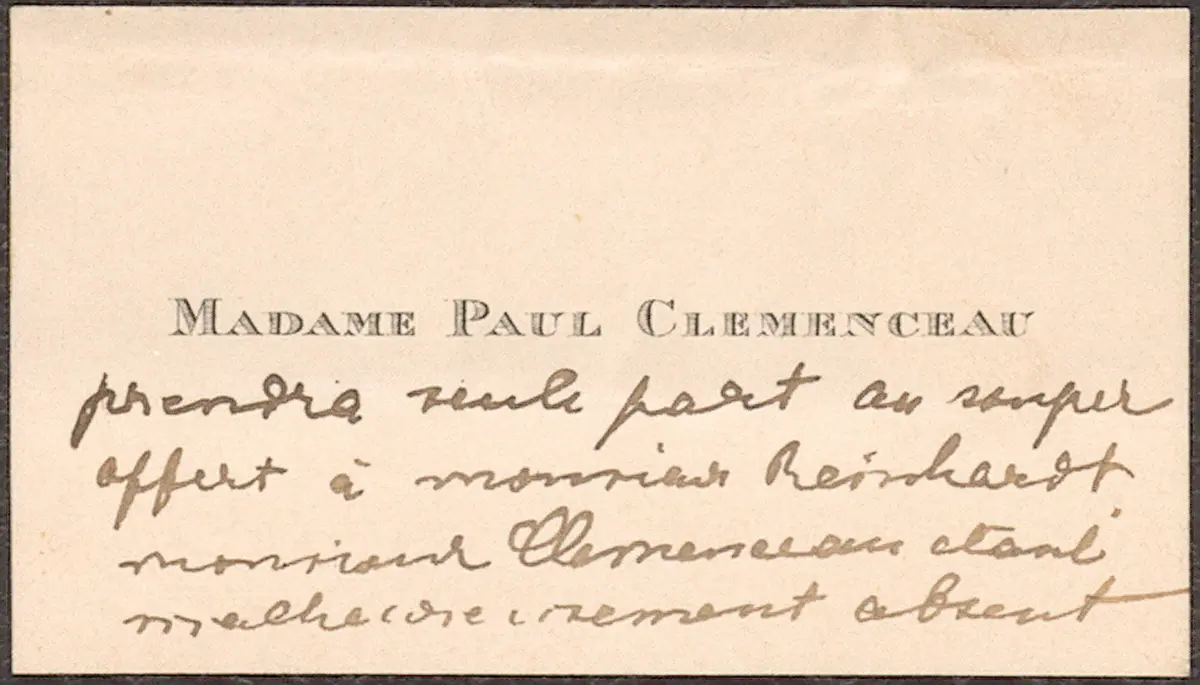 MADAME PAUL CLEMENCEAU
prendra seule part au souper
offert à monsieur Reinhardt
monsieur Clemenceau étant
malheureusement absent